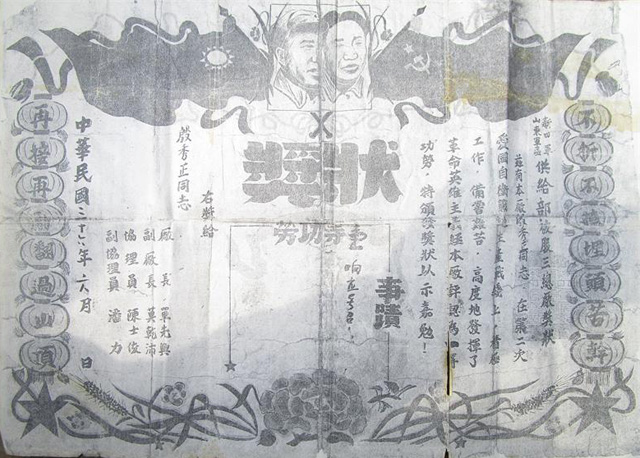 不折不撓埋頭苦幹
新四軍
山東軍區
供給部被服三總廠獎狀
茲有本廠嚴秀正同志 在第二次
愛國自衛
生產戰線上,積極
工作,備嘗艱苦,高度地發揮了
革命英雄主義經本廠評議為四等
功勞,特頒發獎狀以示嘉勉!
獎狀
四等功勞
事蹟
右獎給
嚴秀正同志
廠長
副廠長 莫乾沛
協理員 陳士俊
副協理員 潘力
中華民國三十六年六月 日
再接再厲翻過山頂